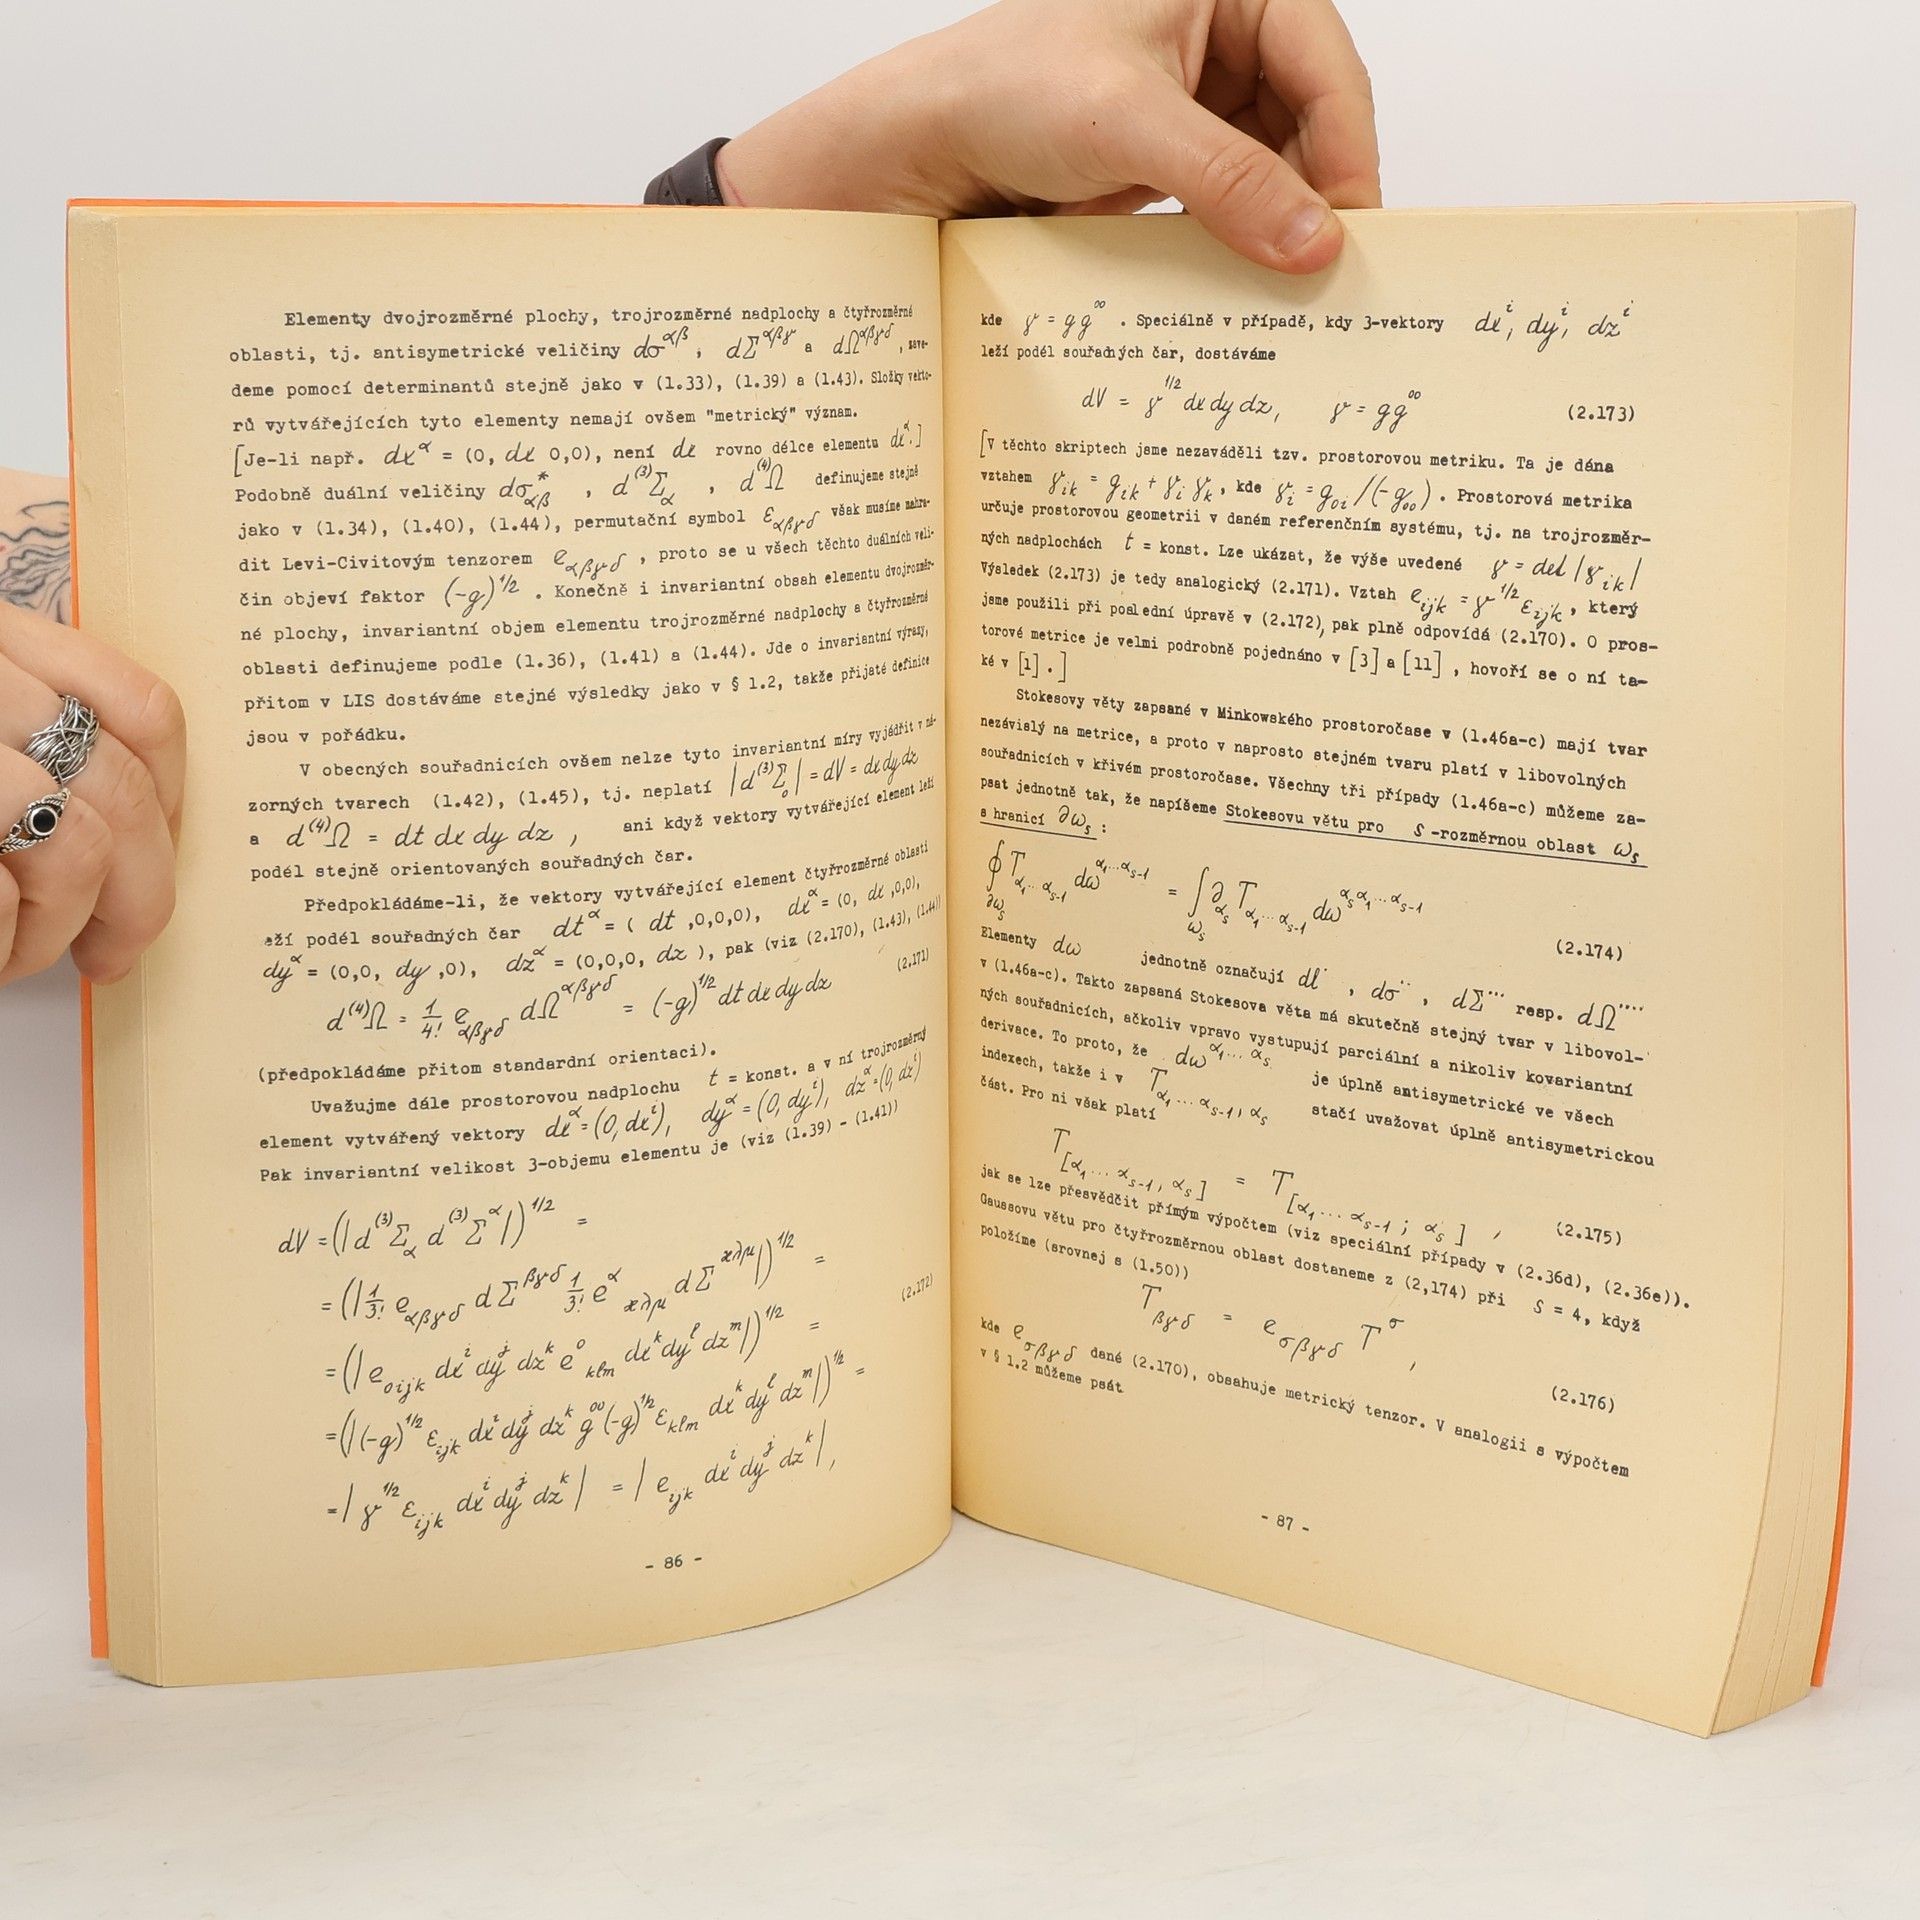 Elementy dvojrozměrné plochy, trojrozměrné nadplochy a čtyřrozměrné
oblasti, tj. antisymetrické veličiny dσ^αβ, dΣ^αβγ a dΩ^αβγδ, zave-
deme pomocí determinantů stejně jako v (1.33), (1.39) a (1.43). Složky vekto-
rů vytvářejících tyto elementy nemají ovšem "metrický" význam.
[Je-li např. dx^α = (0, dx 0,0), není dx rovno délce elementu dx^α.]
Podobně duální veličiny dσ*_αβ , d^(3)Σ_α , d^(4)Ω definujeme stejně
jako v (1.34), (1.40), (1.44), permutační symbol ε_αβγδ však musíme nahra-
dit Levi-Civitovým tenzorem e_αβγδ , proto se u všech těchto duálních veli-
čin objeví faktor (-g)^1/2 . Konečně i invariantní obsah elementu dvojrozměr-
né plochy, invariantní objem elementu trojrozměrné nadplochy a čtyřrozměrné
oblasti definujeme podle (1.36), (1.41) a (1.44). Jde o invariantní výrazy,
přitom v LIS dostáváme stejné výsledky jako v § 1.2, takže přijaté definice
jsou v pořádku.
V obecných souřadnicích ovšem nelze tyto invariantní míry vyjádřit v ná-
zorných tvarech (1.42), (1.45), tj. neplatí |d^(3)Σ_0| = dV = dx dy dz
a d^(4)Ω = dt dx dy dz , ani když vektory vytvářející element leží
podél stejně orientovaných souřadných čar.
Předpokládáme-li, že vektory vytvářející element čtyřrozměrné oblasti
leží podél souřadných čar dt^α = ( dt ,0,0,0), dx^α = (0, dx ,0,0),
dy^α = (0,0, dy ,0), dz^α = (0,0,0, dz ), pak (viz (2.170), (1.43), (1.44))
d^(4)Ω = 1/4! e_αβγδ dΩ^αβγδ = (-g)^1/2 dt dx dy dz (2.171)
(předpokládáme přitom standardní orientaci).
Uvažujme dále prostorovou nadplochu t = konst. a v ní trojrozměrný
element vytvářený vektory dx^α = (0, dx^i), dy^α = (0, dy^i), dz^α = (0, dz^i)
Pak invariantní velikost 3-objemu elementu je (viz (1.39) - (1.41))
dV = (|d^(3)Σ_α d^(3)Σ^α|)^1/2 =
= (|1/3! e_αβγδ dΣ^βγδ 1/3! e^α_ϰλμ dΣ^ϰλμ|)^1/2 =
(2.172)
= (|e_0ijk dx^i dy^j dz^k e^0_klm dx^k dy^l dz^m|)^1/2 =
= (|(-g)^1/2 ε_ijk dx^i dy^j dz^k g^00 (-g)^1/2 ε_klm dx^k dy^l dz^m|)^1/2 =
= |γ^1/2 ε_ijk dx^i dy^j dz^k| = |e_ijk dx^i dy^j dz^k|,
- 86 -
kde γ = g g^00 . Speciálně v případě, kdy 3-vektory dx^i, dy^i, dz^i
leží podél souřadných čar, dostáváme
dV = γ^1/2 dx dy dz, γ = g g^00 (2.173)
[V těchto skriptech jsme nezaváděli tzv. prostorovou metriku. Ta je dána
vztahem γ_ik = g_ik + γ_i γ_k, kde γ_i = g_0i /(-g_00) . Prostorová metrika
určuje prostorovou geometrii v daném referenčním systému, tj. na trojrozměr-
ných nadplochách t = konst. Lze ukázat, že výše uvedené γ = det |γ_ik|
Výsledek (2.173) je tedy analogický (2.171). Vztah e_ijk = γ^1/2 ε_ijk, který
jsme použili při poslední úpravě v (2.172), pak plně odpovídá (2.170). O pros-
torové metrice je velmi podrobně pojednáno v [3] a [11] , hovoří se o ní ta-
ké v [1] .]
Stokesovy věty zapsané v Minkowského prostoročase v (1.46a-c) mají tvar
nezávislý na metrice, a proto v naprosto stejném tvaru platí v libovolných
souřadnicích v křivém prostoročase. Všechny tři případy (1.46a-c) můžeme za-
psat jednotně tak, že napíšeme Stokesovu větu pro s -rozměrnou oblast ω_s
s hranicí ∂ω_s :
∮_∂ω_s T_α₁...α_s-1 dω^α₁...α_s-1 = ∫_ω_s ∂_α_s T_α₁...α_s-1 dω^α_s α₁...α_s-1
(2.174)
Elementy dω jednotně označují dl˙ , dσ˙˙ , dΣ˙˙˙ resp. dΩ˙˙˙˙
v (1.46a-c). Takto zapsaná Stokesova věta má skutečně stejný tvar v libovol-
ných souřadnicích, ačkoliv vpravo vystupují parciální a nikoliv kovariantní
derivace. To proto, že dω^α₁...α_s je úplně antisymetrické ve všech
indexech, takže i v T_α₁...α_s-1,α_s stačí uvažovat úplně antisymetrickou
část. Pro ni však platí
T_[α₁...α_s-1,α_s] = T_[α₁...α_s-1;α_s] , (2.175)
jak se lze přesvědčit přímým výpočtem (viz speciální případy v (2.36d), (2.36e)).
Gaussovu větu pro čtyřrozměrnou oblast dostaneme z (2,174) při s = 4, když
položíme (srovnej s (1.50))
T_βγδ = e_σβγδ T^σ ,
(2.176)
kde e_σβγδ dané (2.170), obsahuje metrický tenzor. V analogii s výpočtem
v § 1.2 můžeme psát
- 87 -